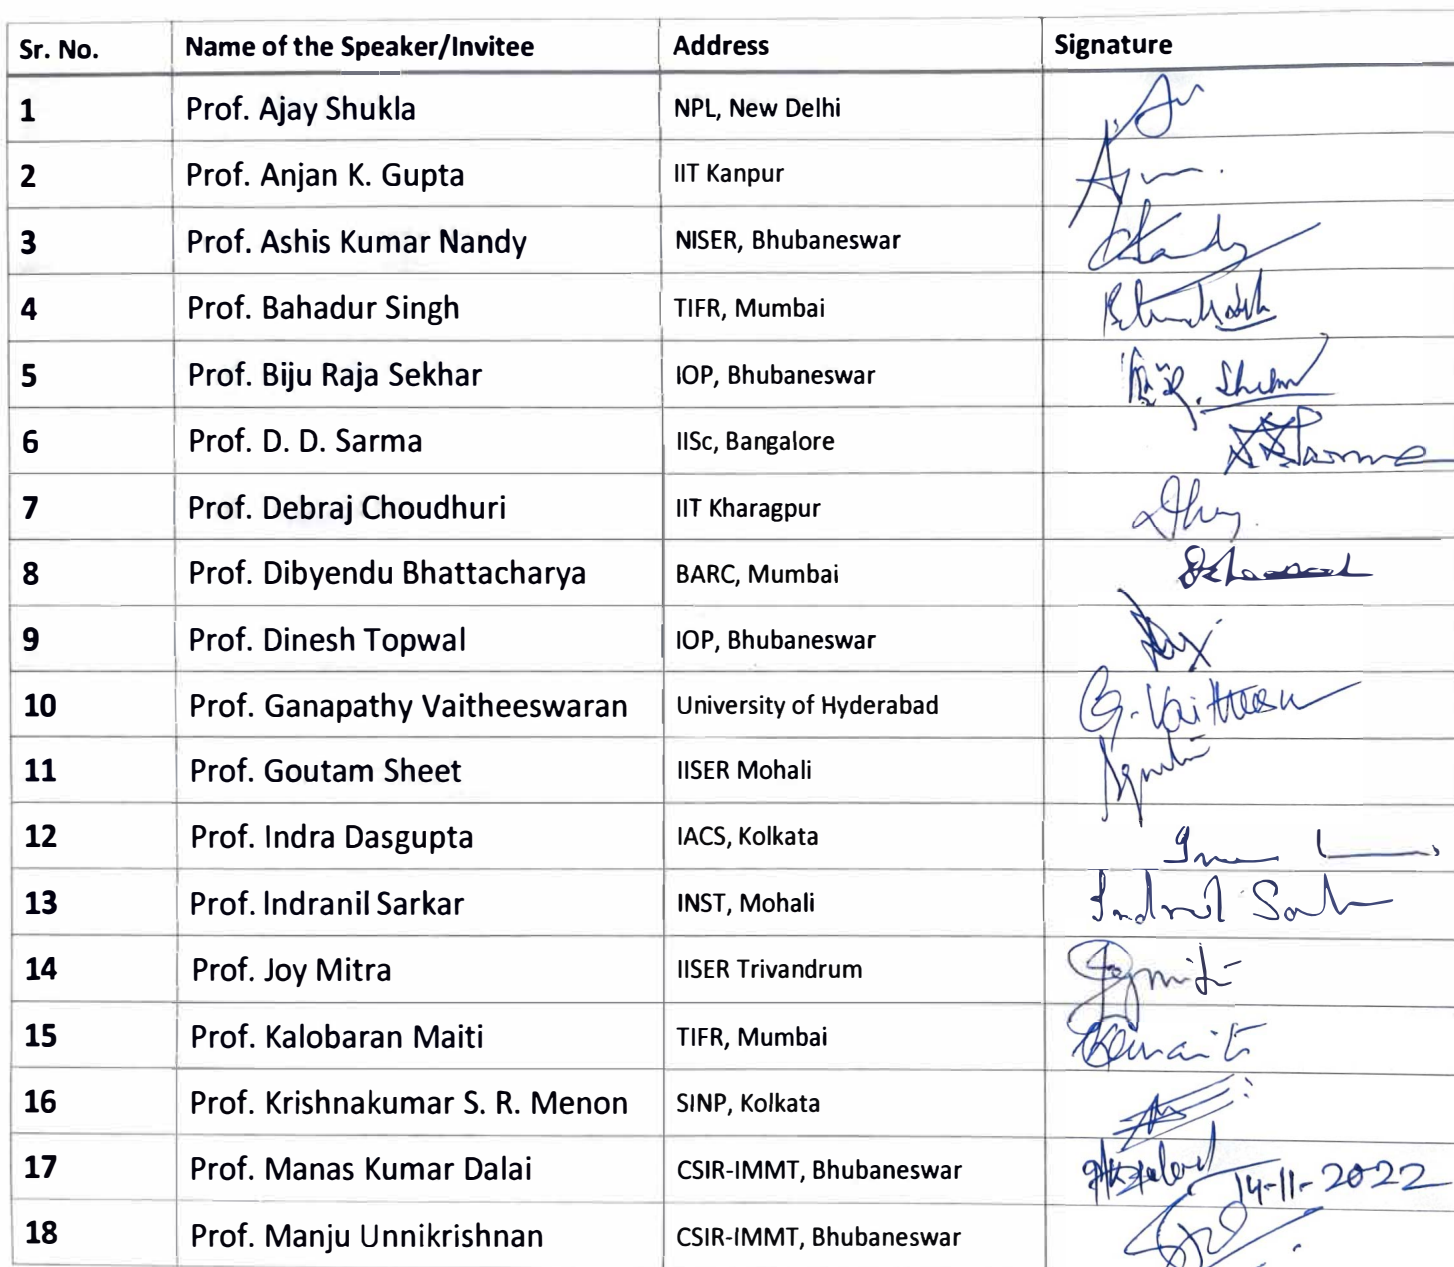 Sr. No. Name of the Speaker/Invitee Address Signature
1 Prof. Ajay Shukla NPL, New Delhi
2 Prof. Anjan K. Gupta IIT Kanpur
3 Prof. Ashis Kumar Nandy NISER, Bhubaneswar
4 Prof. Bahadur Singh TIFR, Mumbai
5 Prof. Biju Raja Sekhar IOP, Bhubaneswar
6 Prof. D. D. Sarma IISc, Bangalore
7 Prof. Debraj Choudhuri IIT Kharagpur
8 Prof. Dibyendu Bhattacharya BARC, Mumbai
9 Prof. Dinesh Topwal IOP, Bhubaneswar
10 Prof. Ganapathy Vaitheeswaran University of Hyderabad
11 Prof. Goutam Sheet IISER Mohali
12 Prof. Indra Dasgupta IACS, Kolkata
13 Prof. Indranil Sarkar INST, Mohali
14 Prof. Joy Mitra IISER Trivandrum
15 Prof. Kalobaran Maiti TIFR, Mumbai
16 Prof. Krishnakumar S. R. Menon SINP, Kolkata
17 Prof. Manas Kumar Dalai CSIR-IMMT, Bhubaneswar 14-11-2022
18 Prof. Manju Unnikrishnan CSIR-IMMT, Bhubaneswar